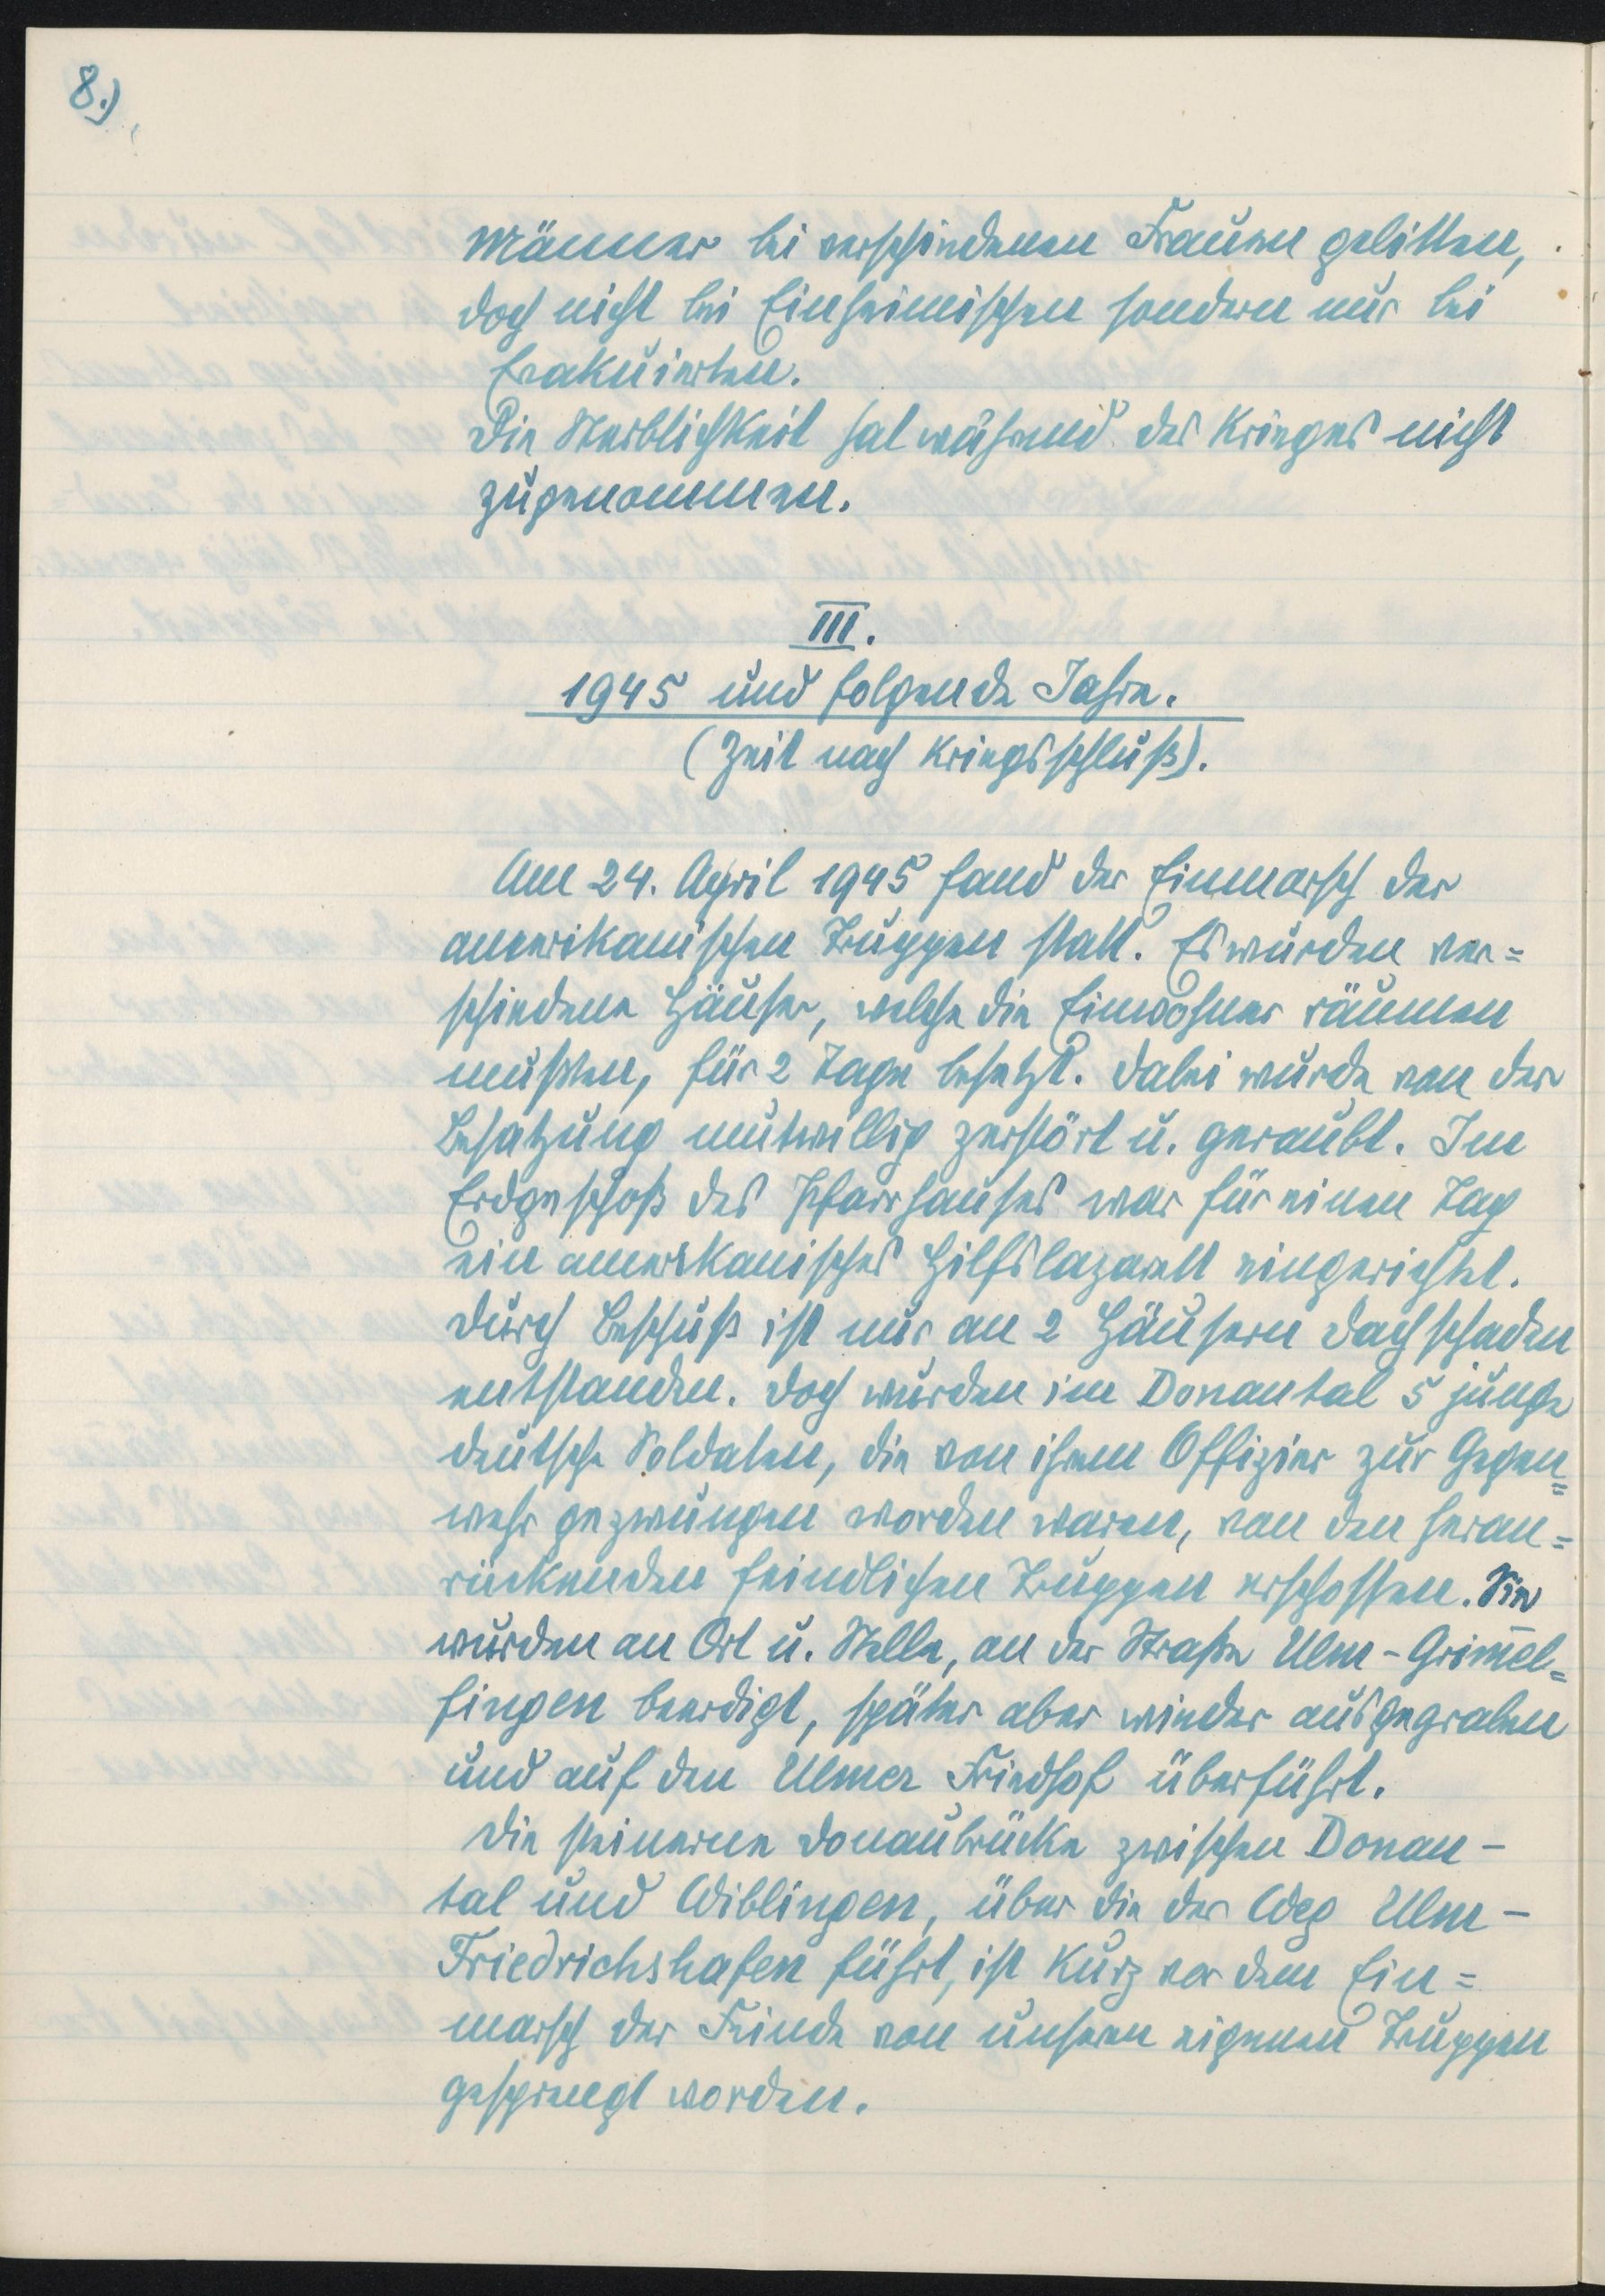 8.)
Männer bei verschiedenen Frauen gelitten,
doch nicht bei Einheimischen sondern nur bei
Evakuierten.
Die Sterblichkeit hat während des Krieges nicht
zugenommen.
III.
1945 und folgende Jahre.
(Zeit nach Kriegsschluß).
Am 24. April 1945 fand der Einmarsch der
amerikanischen Truppen statt. Es wurden ver=
schiedene Häuser, welche die Einwohner räumen
mußten, für 2 Tage besetzt. Dabei wurde von der
Besatzung mutwillig zerstört u. geraubt. Im
Erdgeschoß des Pfarrhauses war für einen Tag
ein amerikanisches Hilfslazarett eingerichtet.
Durch Beschuß ist nur an 2 Häusern Dachschaden
entstanden. Doch wurden im Donautal 5 junge
deutsche Soldaten, die von ihrem Offizier zur Gegen=
wehr gezwungen worden waren, von den heran=
rückenden feindlichen Truppen erschossen. Sie
wurden an Ort u. Stelle, an der Straße Ulm - Grim̄el=
fingen beerdigt, später aber wieder ausgegraben
und auf den Ulmer Friedhof überführt.
Die steinerne Donaubrücke zwischen Donau-
tal und Wiblingen, über die der Weg Ulm -
Friedrichshafen führt, ist kurz vor dem Ein=
marsch der Feinde von unseren eigenen Truppen
gesprengt worden.